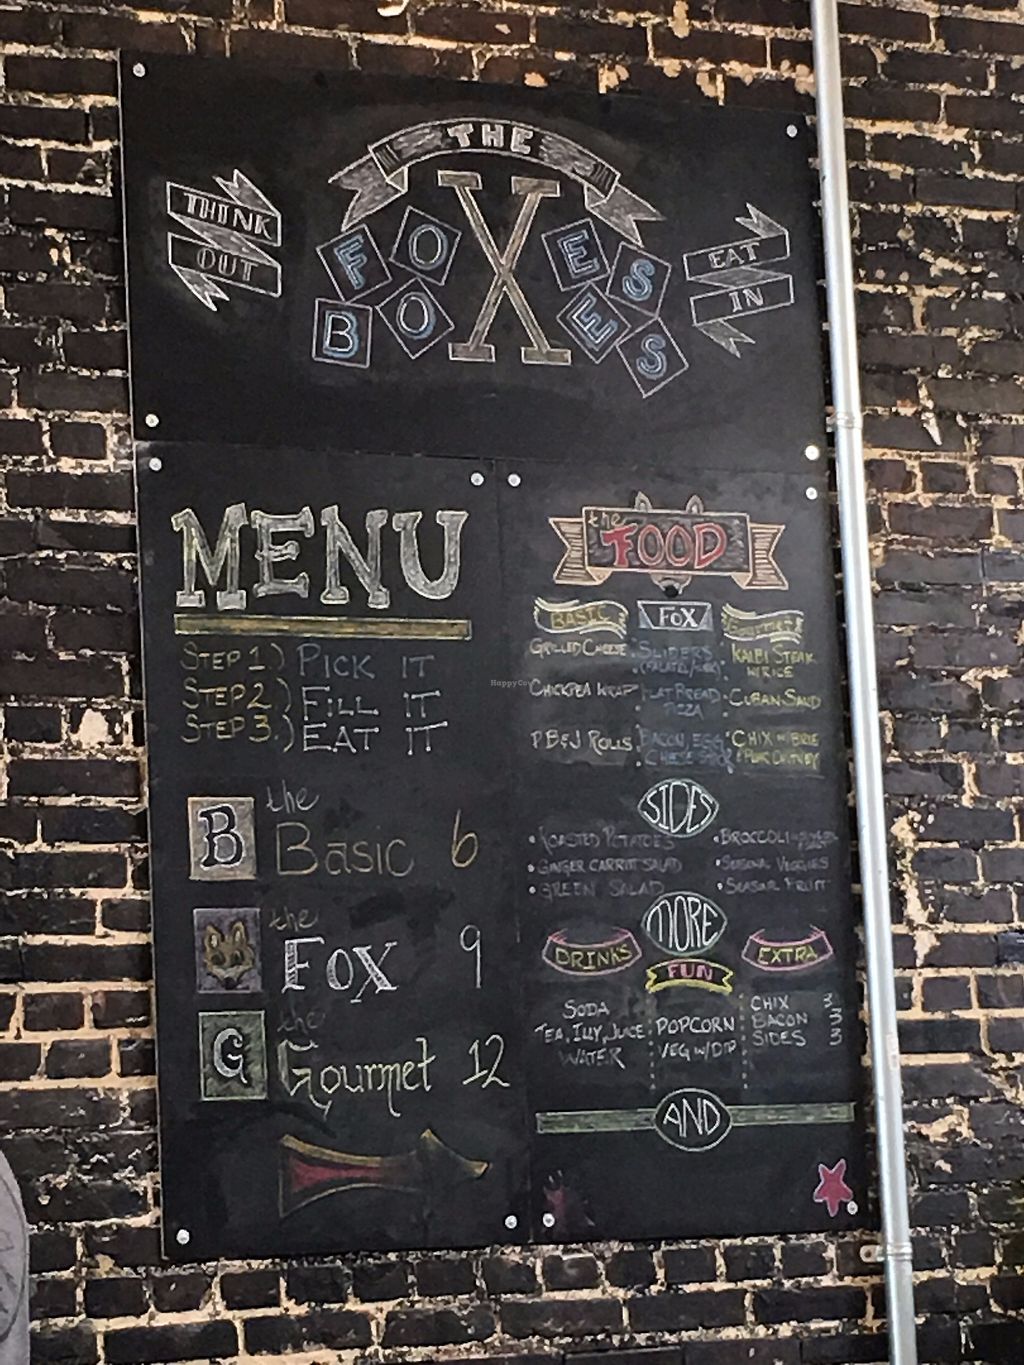 THE
THINK
OUT
FOXES
BOXES
EAT
IN
MENU
STEP 1.) PICK IT
STEP 2.) FILL IT
STEP 3.) EAT IT
B
the
Basic 6
the
Fox 9
G
the
Gourmet 12
the
FOOD
BASIC
GRILLED CHEESE
CHICKPEA WRAP
PB&J ROLLS
FOX
SLIDERS
FLAT BREAD
PIZZA
BACON, EGG,
CHEESE
GOURMET
KALBI STEAK
W/RICE
CUBAN SAND
CHIX W/BRIE
SIDES
• ROASTED POTATOES
• GINGER CARROT SALAD
• GREEN SALAD
• BROCCOLI
• SEASONAL VEGGIES
• SEASONAL FRUIT
MORE
FUN
DRINKS
SODA
TEA, JUICE
WATER
POPCORN
VEG W/DIP
EXTRA
CHIX 3
BACON 3
SIDES 3
AND
HappyCow